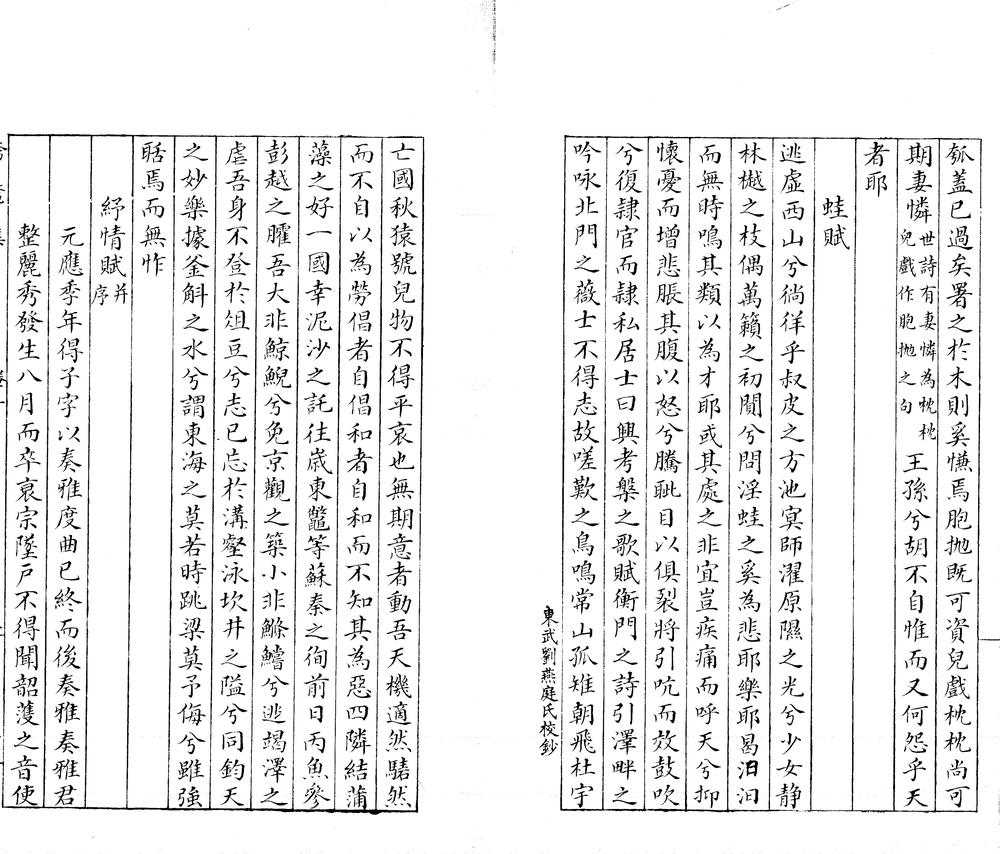 瓠蓋已過矣署之於木則奚慊焉胞抛既可資兒戲枕枕尚可
期妻憐世詩有妻憐為枕枕兒戲作胞抛之句王孫兮胡不自惟而又何怨乎天
者耶
蛙賦
逃虛西山兮徜徉乎叔皮之方池冥師濯原隰之光兮少女靜
林樾之枝偶萬籟之初聞兮問淫蛙之奚為悲耶樂耶曷汨汩
而無時鳴其類以為才耶或其處之非宜豈疾痛而呼天兮抑
懷憂而增悲脹其腹以怒兮騰眦目以俱裂將引吭而效鼓吹
兮復隷官而隷私居士曰興考槃之歌賦衡門之詩引澤畔之
吟咏北門之薇士不得志故嗟歎之鳥鳴常山孤雉朝飛杜宇
東武劉燕庭氏校鈔
亡國秋猿號兒物不得平哀也無期意者動吾天機適然䮤然
而不自以為勞倡者自倡和者自和而不知其為惡四隣結蒲
藻之好一國幸泥沙之託往歲東鼈等蘇秦之徇前日丙魚參
彭越之臛吾大非鯨鯢兮免京觀之築小非鰷鱨兮逃竭澤之
虐吾身不登於俎豆兮志已忘於溝壑泳坎井之隘兮同鈞天
之妙樂據釜斛之水兮謂東海之莫若時跳梁莫予侮兮雖強
聒焉而無怍
紓情賦并序
元應季年得子字以奏雅度曲已終而後奏雅奏雅君
整麗秀發生八月而卒哀宗墜戶不得聞韶濩之音使